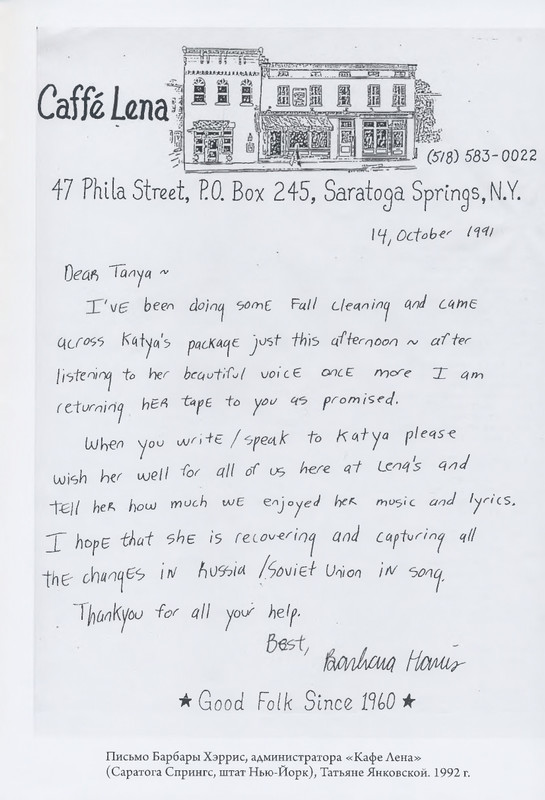 Caffé Lena
(518) 583-0022
47 Phila Street, P.O. Box 245, Saratoga Springs, N.Y.
14, October 1991
Dear Tanya ~
I've been doing some Fall cleaning and came
across Katya's package just this afternoon ~ after
listening to her beautiful voice once more I am
returning her tape to you as promised.
When you write/speak to Katya please
wish her well for all of us here at Lena's and
tell her how much we enjoyed her music and lyrics.
I hope that she is recovering and capturing all
the changes in Russia/Soviet Union in song.
Thankyou for all your help.
Best,
Barbara Harris
★ Good Folk Since 1960 ★
Письмо Барбары Хэррис, администратора «Кафе Лена»
(Саратога Спрингс, штат Нью-Йорк), Татьяне Янковской. 1992 г.